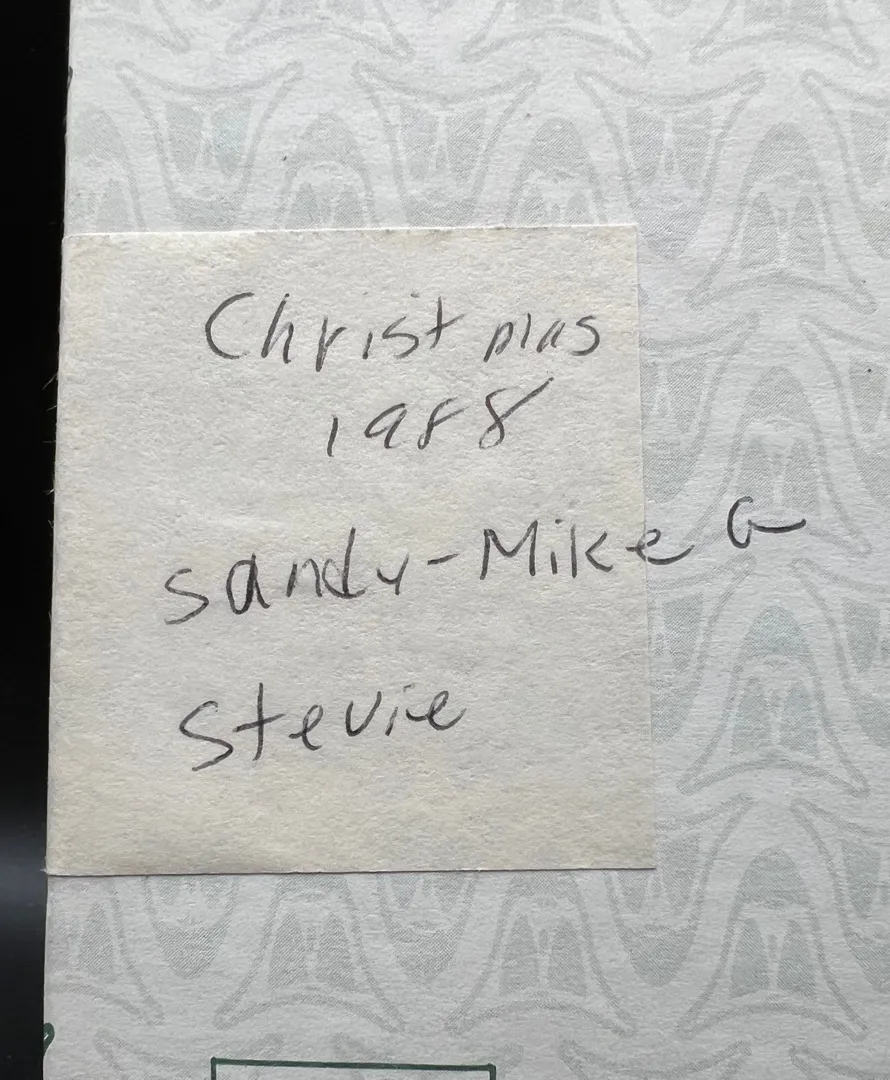 Christmas
1988
Sandy-Mike G
Stevie